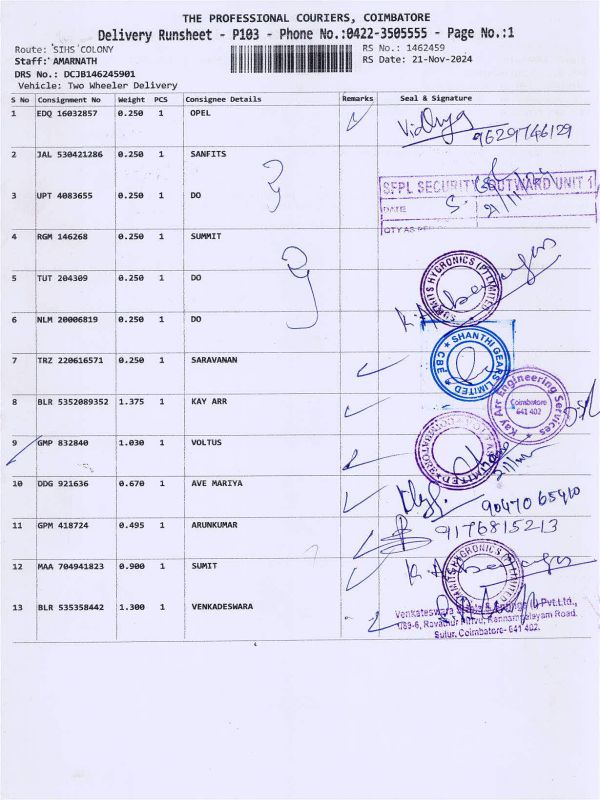 THE PROFESSIONAL COURIERS, COIMBATORE
Delivery Runsheet - P103 - Phone No.:0422-3505555 - Page No.:1
Route: SIHS COLONY
RS No.: 1462459
Staff: AMARNATH
RS Date: 21-Nov-2024
DRS No.: DCJB146245901
Vehicle: Two Wheeler Delivery
S No Consignment No Weight PCS Consignee Details Remarks Seal & Signature
1 EDQ 16032857 0.250 1 OPEL
Vidhya 9629746129
2 JAL 530421286 0.250 1 SANFITS
SFPL SECURITY OUTWARD UNIT 1
3 UPT 4083655 0.250 1 DO
DATE
4 RGM 146268 0.250 1 SUMMIT
5 TUT 204309 0.250 1 DO
HYDRONICS (P) LIMITED
6 NLM 20006819 0.250 1 DO
7 TRZ 220616571 0.250 1 SARAVANAN
SHANTHI GEARS LIMITED
CBE
8 BLR 5352089352 1.375 1 KAY ARR
Kay Arr Engineering Services
Coimbatore
641 402
9 GMP 832840 1.030 1 VOLTUS
10 DDG 921636 0.670 1 AVE MARIYA
11 GPM 418724 0.495 1 ARUNKUMAR
9176815213
12 MAA 704941823 0.900 1 SUMIT
HYDRONICS (P) LIMITED
13 BLR 535358442 1.300 1 VENKADESWARA
Venkateswara Steels & Springs (I) Pvt.Ltd.,
Sulur, Coimbatore- 641 402.